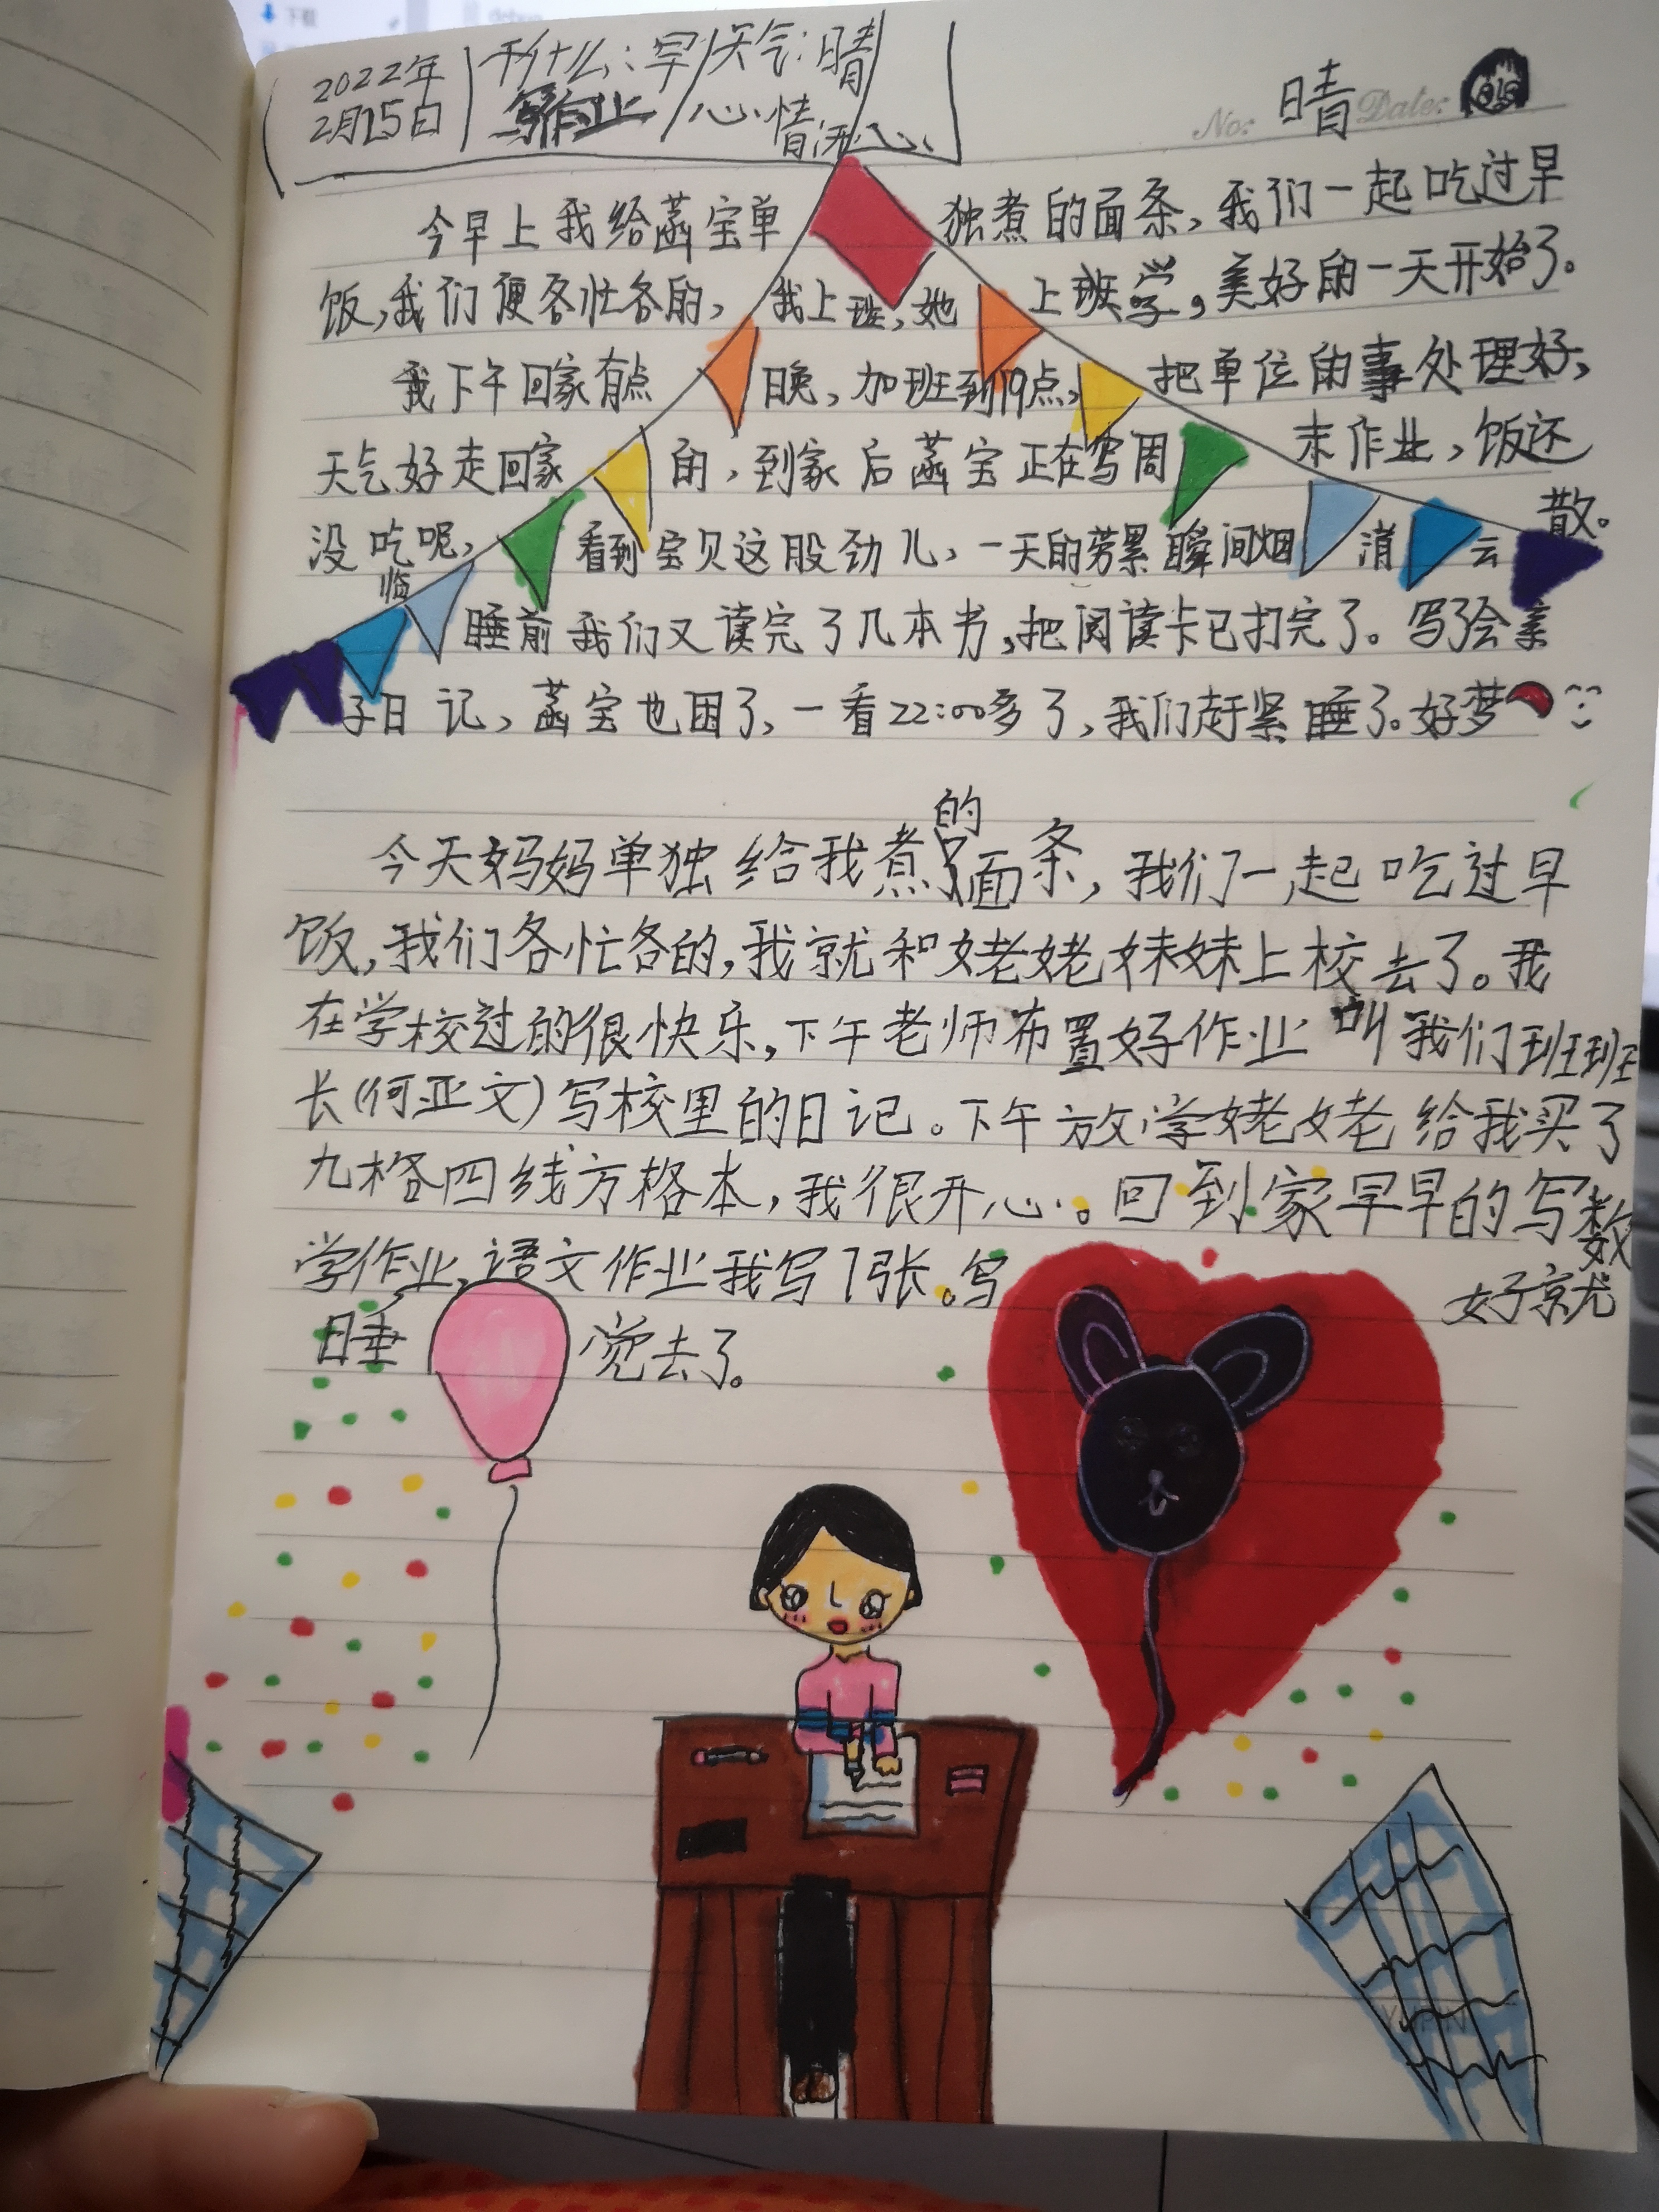 2022年 干什么:早 天气:晴
2月15日 写作业 心情:开心
No: 晴 Date:
今早上我给菡宝单独煮的面条,我们一起吃过早
饭,我们便各忙各的,我上班,她上学,美好的一天开始了。
我下午回家有点晚,加班到19点,把单位的事处理好,
天气好走回家的,到家后菡宝正在写周末作业,饭还
没吃呢,看到宝贝这股劲儿,一天的劳累瞬间烟消云散。
临睡前我们又读完了几本书,把阅读卡已打完了。写了会亲
子日记,菡宝也困了,一看22:00多了,我们赶紧睡了。好梦
今天妈妈单独给我煮的面条,我们一起吃过早
饭,我们各忙各的,我就和姥姥妹妹上校去了。我
在学校过的很快乐,下午老师布置好作业叫我们班班
长(何亚文)写校里的日记。下午放学姥姥给我买了
九格四线方格本,我很开心。回到家早早的写数
学作业,语文作业我写1张。写好就
睡觉去了。